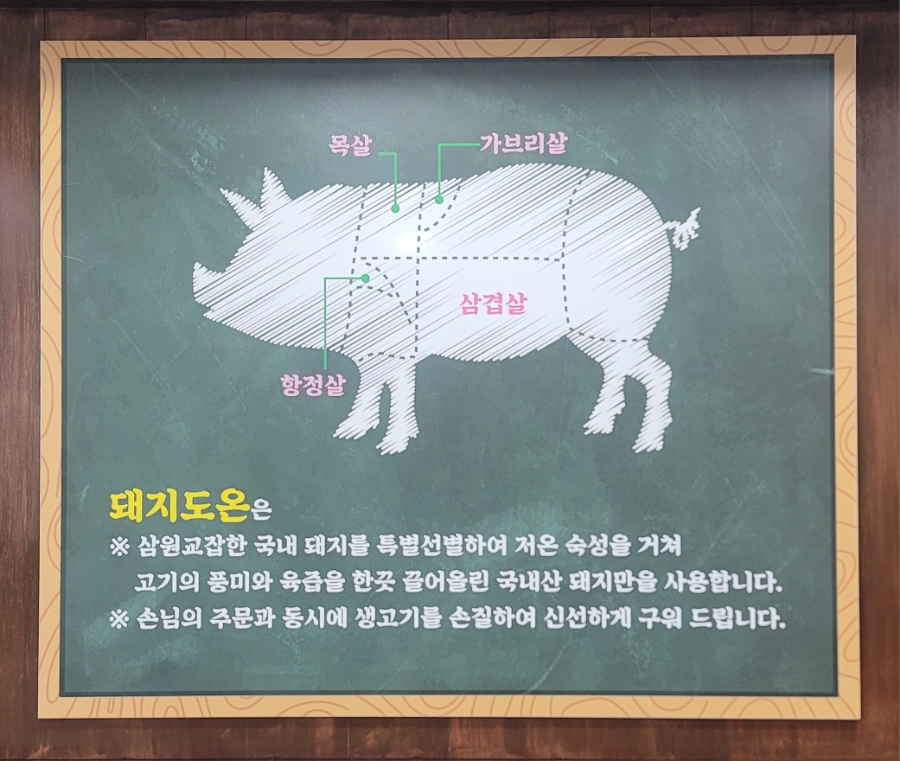 목살
가브리살
삼겹살
항정살
돼지도온은
※ 삼원교잡한 국내 돼지를 특별선별하여 저온 숙성을 거쳐
고기의 풍미와 육즙을 한끗 끌어올린 국내산 돼지만을 사용합니다.
※ 손님의 주문과 동시에 생고기를 손질하여 신선하게 구워 드립니다.